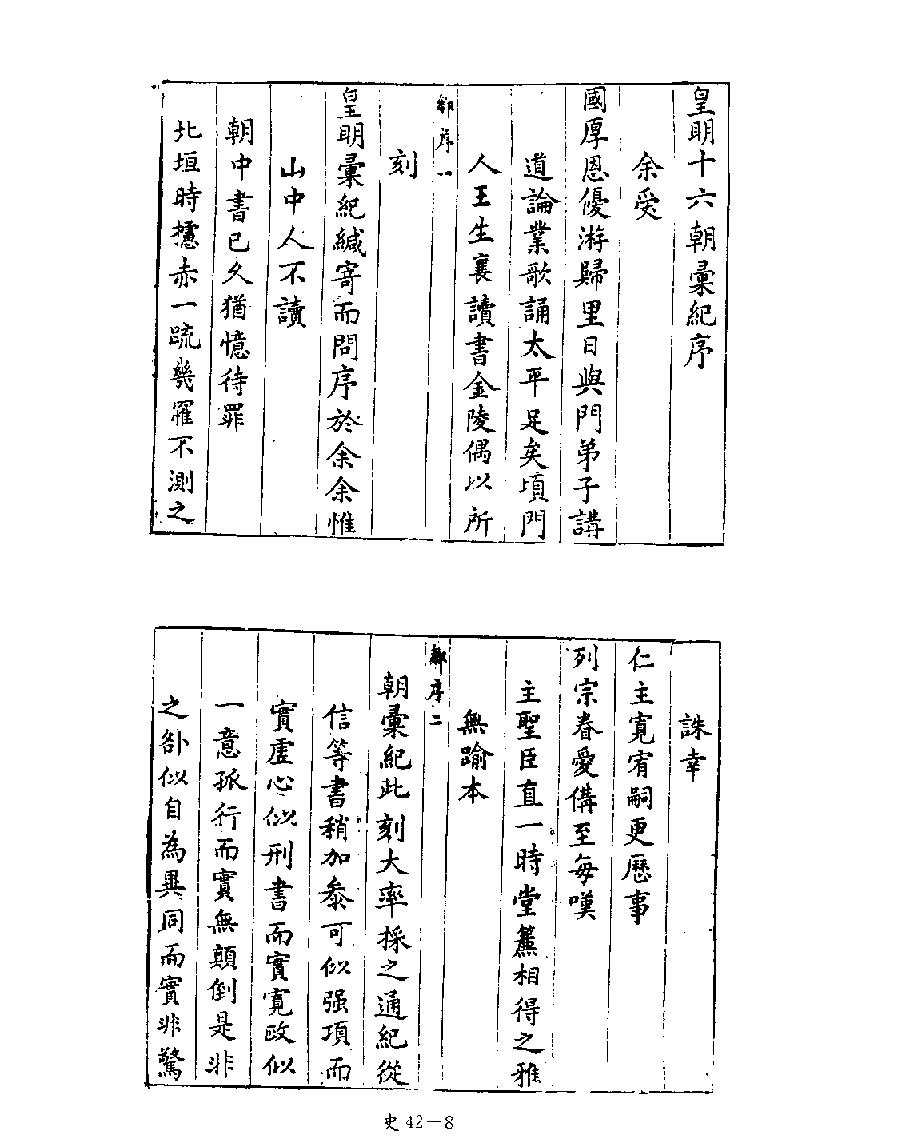 皇明十六朝彙紀序
余受
國厚恩優游歸里日與門弟子講
道論業歌誦太平足矣頃門
人王生襄讀書金陵偶以所
鄒序一
刻
皇明彙紀緘寄而問序於余余惟
山中人不讀
朝中書已久猶憶待罪
北垣時攄赤一疏幾罹不測之
誅幸
仁主寬宥嗣更歷事
列宗眷愛俻至每嘆
主聖臣直一時堂簾相得之雅
無踰本
鄒序二
朝彙紀此刻大率採之通紀從
信等書稍加叅可似强項而
實虛心似刑書而實寬政似
一意孤行而實無顛倒是非
之衸似自為異同而實非驚
史 42－8